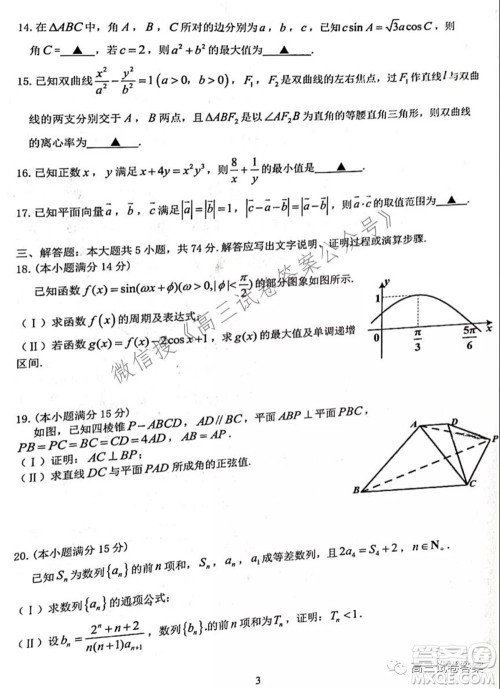 14. 在ΔABC中，角A，B，C所对的边分别为a，b，c，已知c sin A = √3 a cos C，则
角C = ▲ ，若c = 2，则a² + b²的最大值为 ▲ .
15. 已知双曲线 x²/a² − y²/b² = 1(a > 0，b > 0)，F₁，F₂是双曲线的左右焦点，过F₁作直线l与双曲
线的两支分别交于A，B两点，且ΔABF₂是以∠B为直角的等腰直角三角形，则双曲线
的离心率为 ▲ .
16. 已知正数x，y满足x + 4y = x²y³，则 8/x + 1/y 的最小值是 ▲ .
17. 已知平面向量a⃗，b⃗，c⃗满足|a⃗| = |b⃗| = 1，|c⃗ − a⃗ − b⃗| = |a⃗ − b⃗|，则a⃗·c⃗的取值范围为 ▲ .
三、解答题：本大题共5小题，共74分.解答应写出文字说明、证明过程或演算步骤.
18. (本小题满分14分)
已知函数 f(x) = sin(ωx + ϕ)(ω > 0, |ϕ| < π/2)的部分图象如图所示.
(Ⅰ) 求函数 f(x) 的周期及表达式.
(Ⅱ) 若函数 g(x) = f(x) − 2cos x + 1，求 g(x) 的最大值及单调递增
区间.
y
1
O
π/3
5π/6
x
19. (本小题满分15分)
如图，已知四棱锥P − ABCD，AD // BC，平面ABP ⊥ 平面PBC，
PB = PC = BC = CD = 4AD，AB = AP.
(Ⅰ) 证明：AC ⊥ BP；
(Ⅱ) 求直线DC与平面PAD所成角的正弦值.
A
D
P
B
C
20. (本小题满分15分)
已知Sₙ为数列{aₙ}的前n项和，Sₙ，aₙ，a₁成等差数列，且2a₄ = S₄ + 2，n∈N₊.
(Ⅰ) 求数列{aₙ}的通项公式；
(Ⅱ) 设bₙ = (2ⁿ + n + 2)/(n(n + 1)aₙ₊₁)，数列{bₙ}的前n项和为Tₙ，证明：Tₙ < 1.
3
微信搜《高三试卷答案公众号》
高三试卷答案